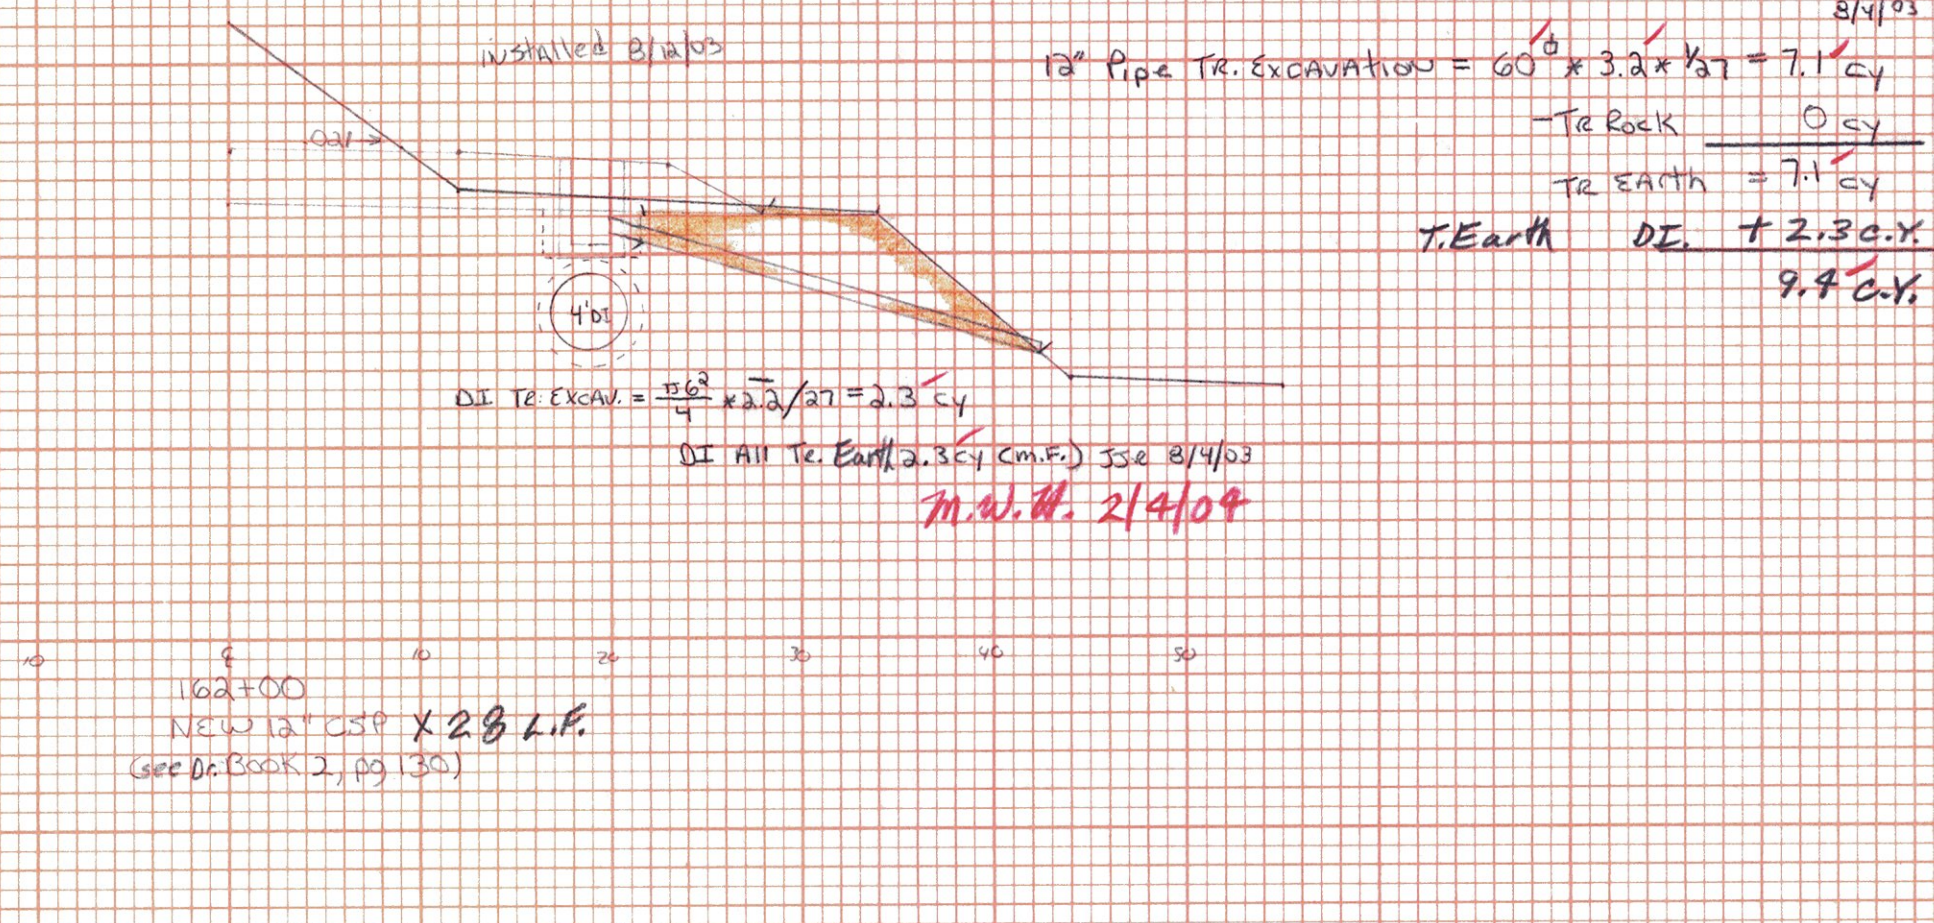 8/4/03
installed 8/12/03
12" Pipe TR. EXCAVATION = 60 * 3.2 * 1/27 = 7.1 cy
- TR Rock 0 cy
TR EARTH = 7.1 cy
T.Earth DI. + 2.3 C.Y.
9.4 C.Y.
.021→
4' DI
DI TR. EXCAV. = π6²/4 * 2.2/27 = 2.3 cy
DI All Tr. Earth 2.3 cy (m.F.) JJe 8/4/03
M.W.H. 2/4/04
10 ℄ 10 20 30 40 50
162+00
NEW 12" CSP X 28 L.F.
(see Dr. Book 2, pg 130)